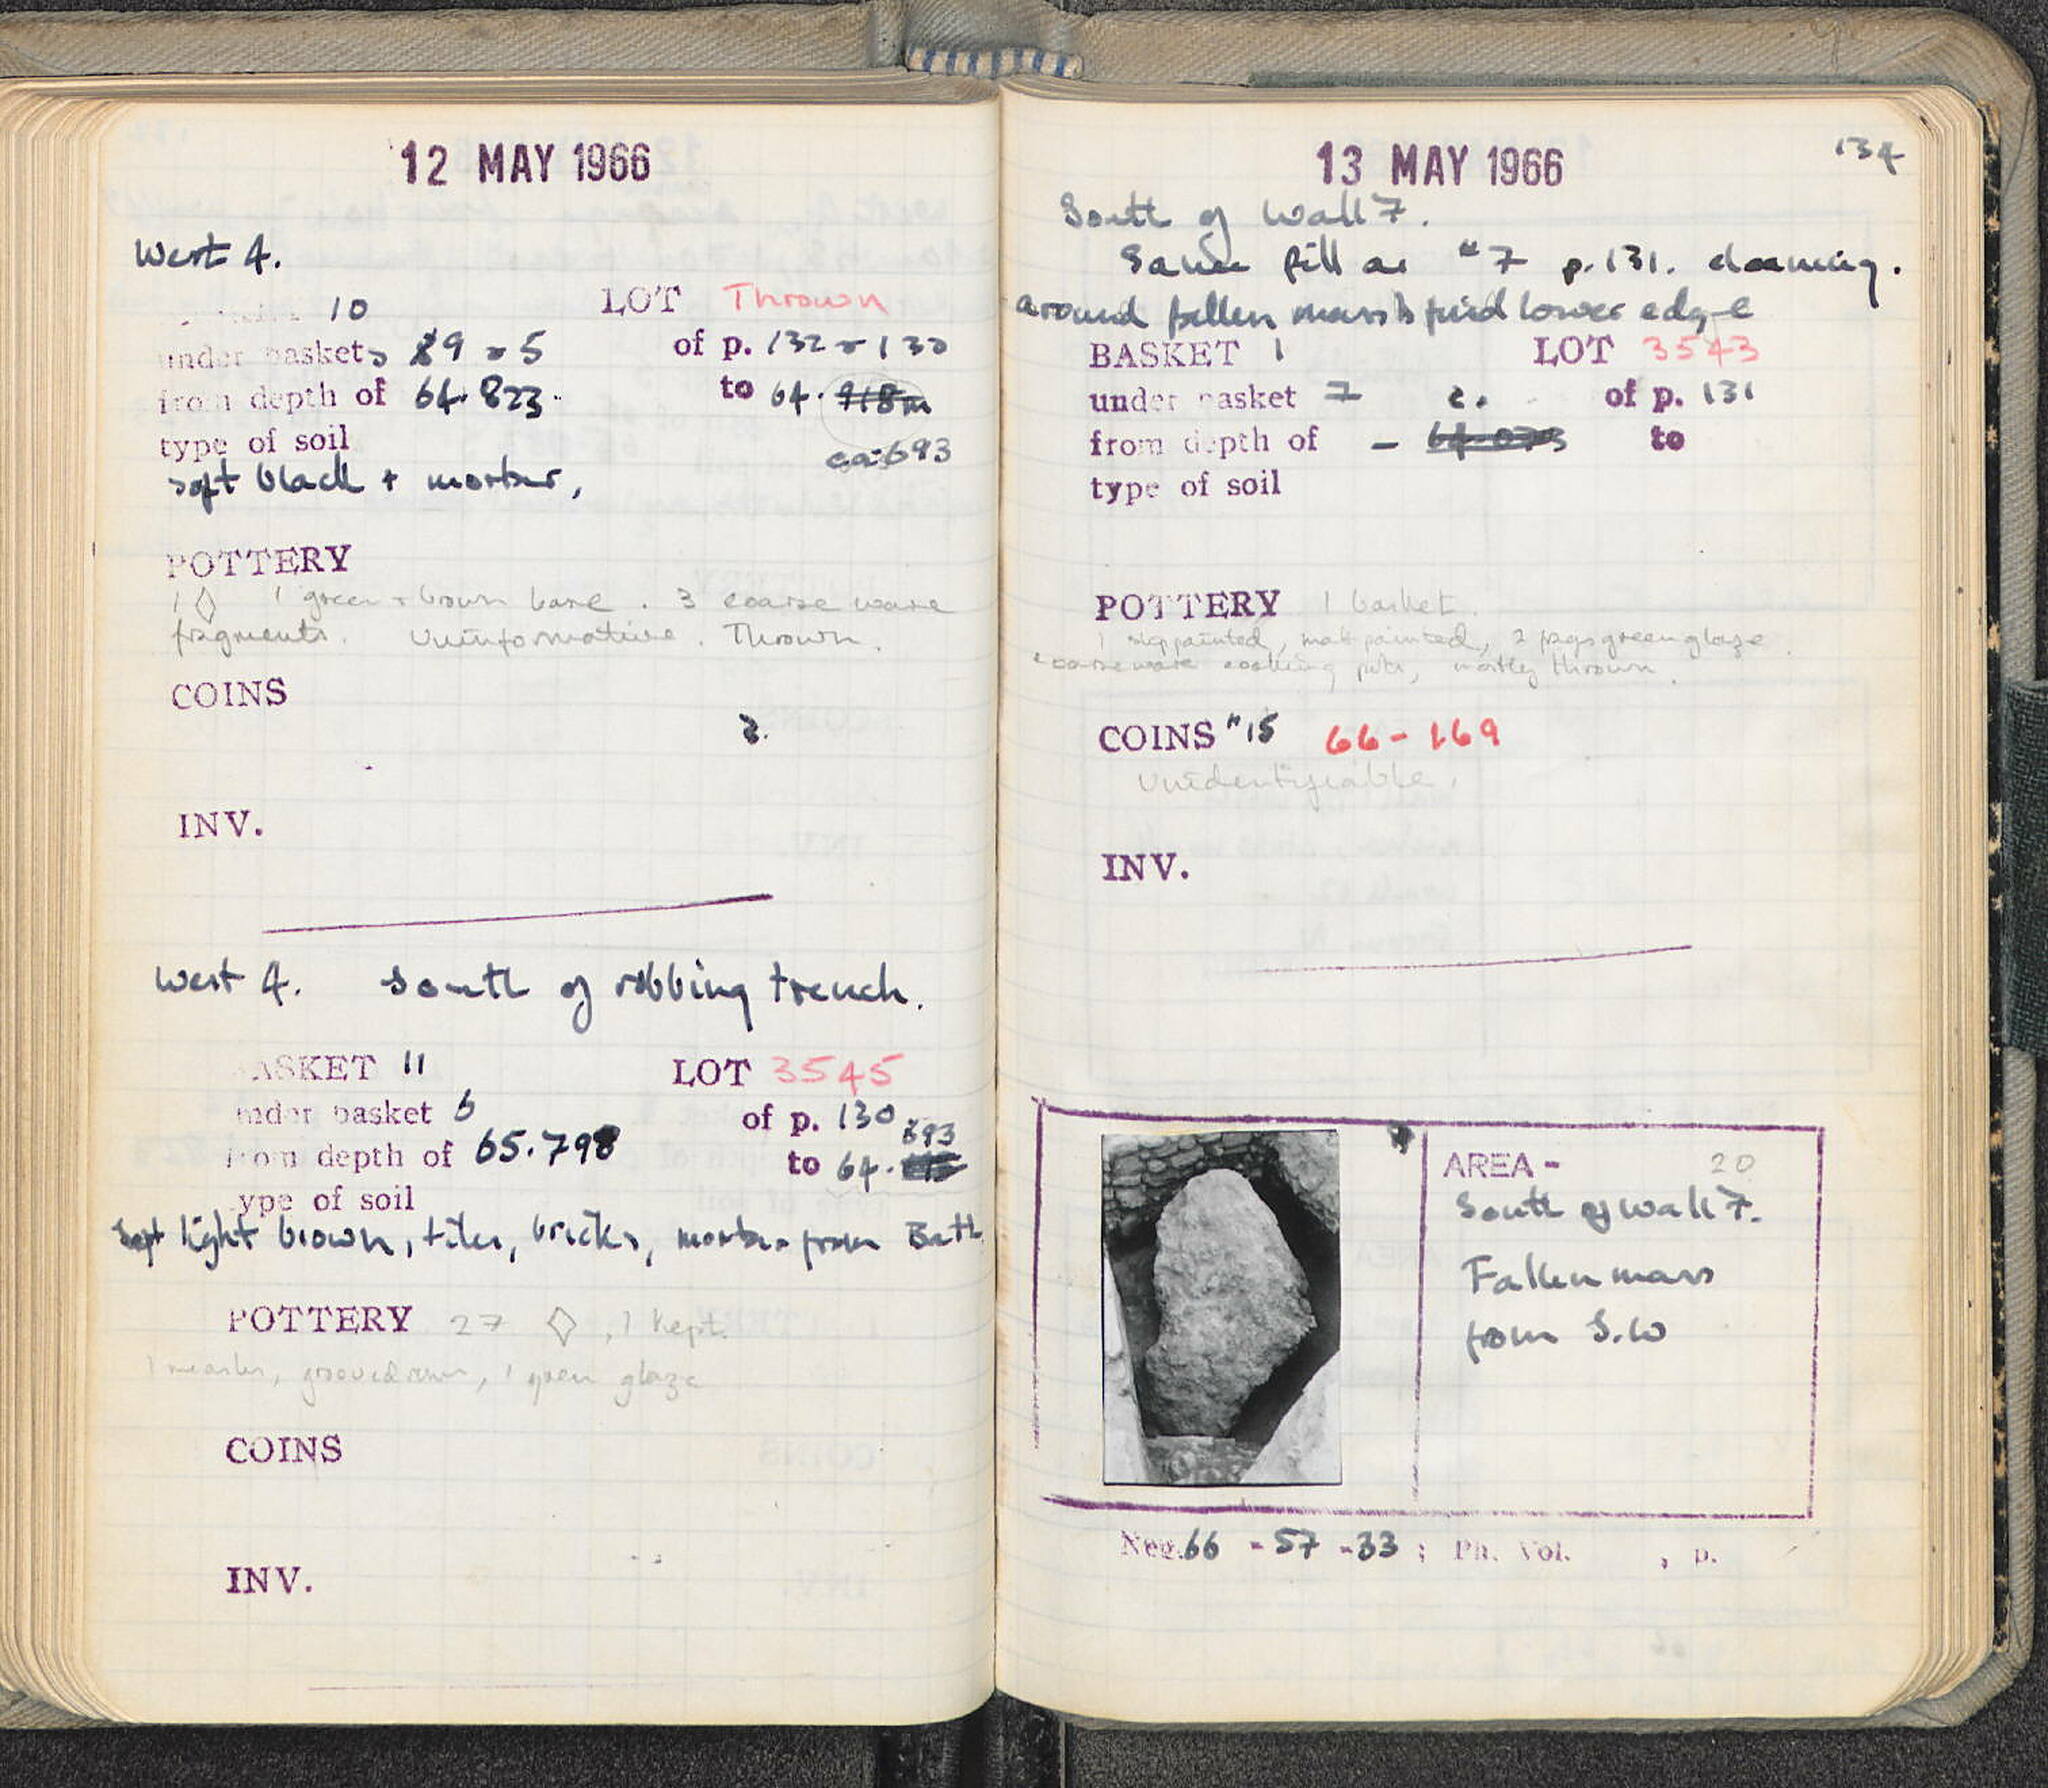 12 MAY 1966
West 4.
10 LOT Thrown
under baskets 9 + 5 of p. 132 + 130
from depth of 64.823 to 64. 718m
ca. 693
type of soil
soft black + mortar,
POTTERY
1 ◊ 1 green + brown base. 3 coarse ware
fragments. Uninformative. Thrown.
COINS
2.
INV.
West 4. South of robbing trench.
BASKET 11 LOT 3545
under basket 6 of p. 130
from depth of 65.798 to 64. 693
type of soil
soft light brown, tiles, bricks, mortar from Bath
POTTERY 27 ◊, 1 kept.
1 measles, grooved rim, 1 green glaze
COINS
INV.
13 MAY 1966
134
South of Wall 7.
Same fill as #7 p. 131. cleaning.
around fallen mass to find lower edge
BASKET 1 LOT 3543
under basket 7 2. of p. 131
from depth of - to
type of soil
POTTERY 1 basket.
1 slip painted, matt painted, 2 frags green glaze.
coarse ware cooking pots, mostly thrown.
COINS #15 66-169
Unidentifiable.
INV.
AREA - 20
South of Wall 7.
Fallen mass
from S.W
Neg. 66 - 57 - 33 ; Ph. Vol. , p.